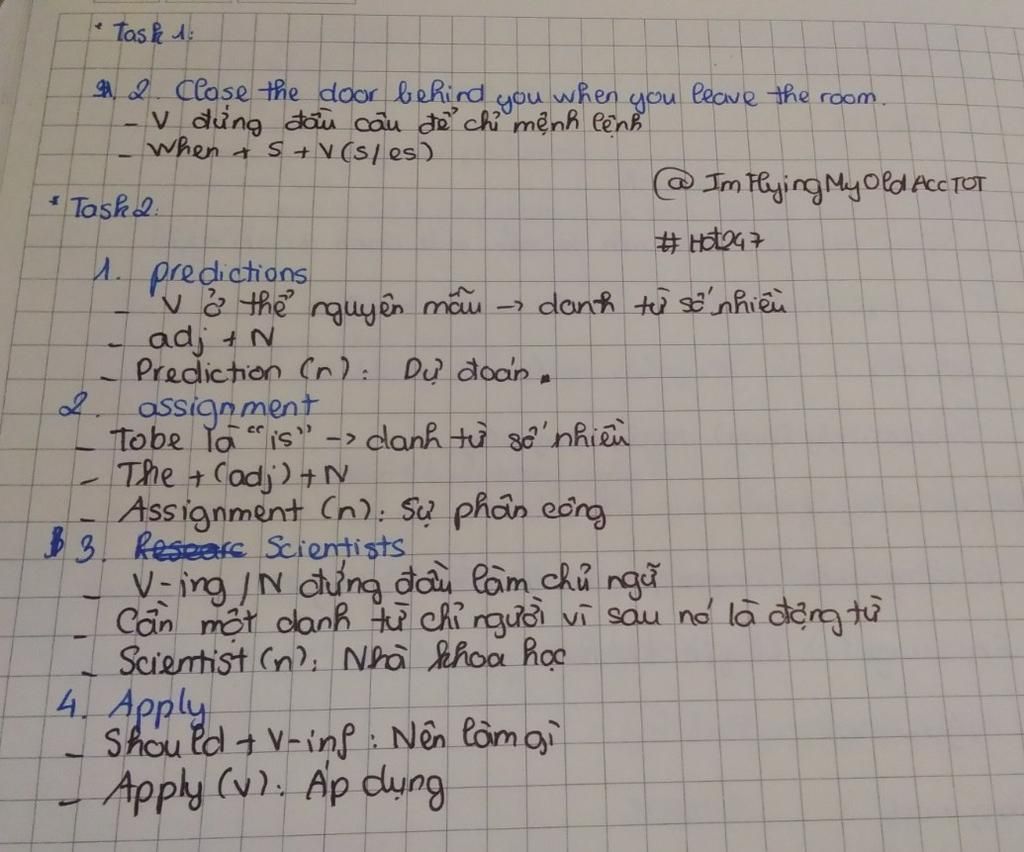 * Task 1:
2. Close the door behind you when you leave the room.
- V đứng đầu câu để chỉ mệnh lệnh
- When + S + V(s/es)
@ImFlyingMyOldAccTOT
* Task 2:
#Hot247
1. predictions
- V ở thể nguyên mẫu -> danh từ số nhiều
- adj + N
- Prediction (n): Dự đoán.
2. assignment
- Tobe là "is" -> danh từ số nhiều
- The + (adj) + N
- Assignment (n): Sự phân công
3. Researc Scientists
- V-ing / N đứng đầu làm chủ ngữ
- Cần một danh từ chỉ người vì sau nó là động từ
- Scientist (n): Nhà khoa học
4. Apply
- Should + V-inf: Nên làm gì
- Apply (v): Áp dụng